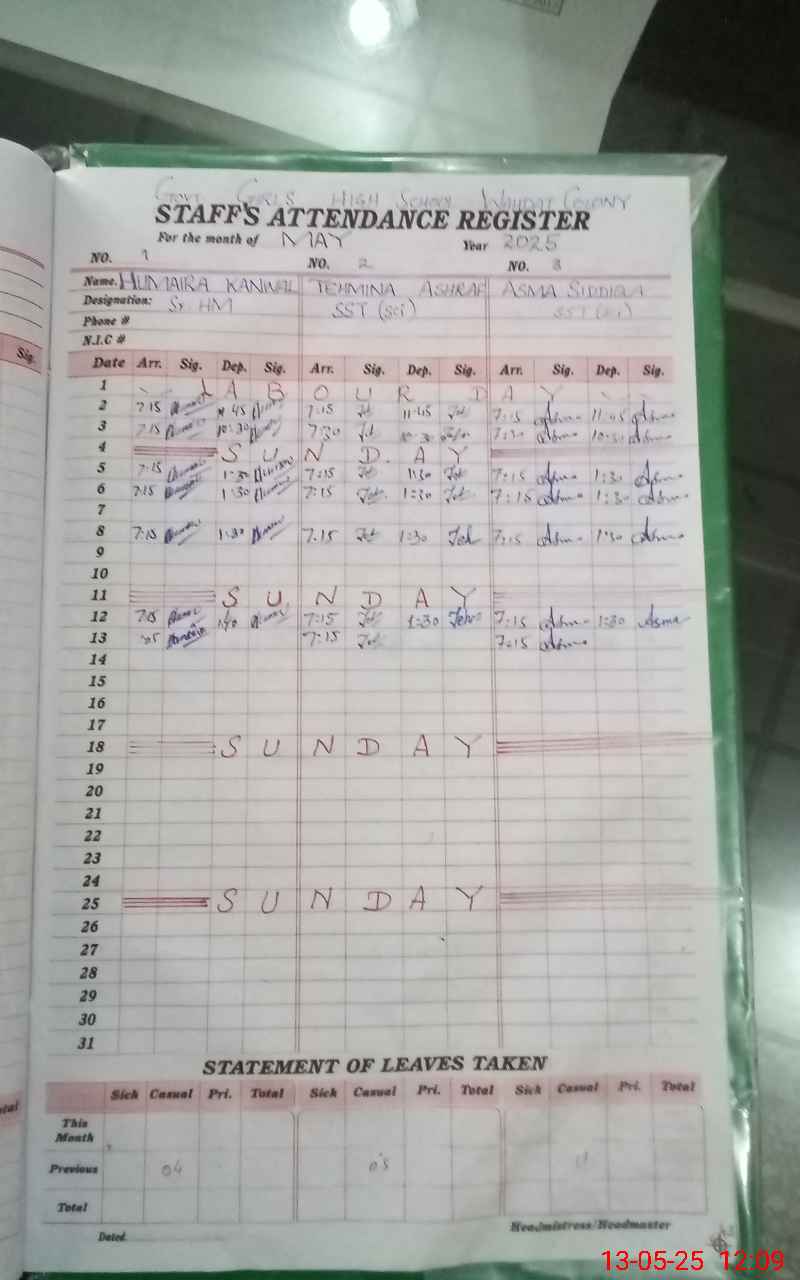 GOVT GIRLS HIGH SCHOOL WAHDAT COLONY
STAFF'S ATTENDANCE REGISTER
For the month of MAY Year 2025
NO. 1 NO. 2 NO. 3
Name. HUMAIRA KANWAL TEHMINA ASHRAF ASMA SIDDIQA
Designation: Sr. HM SST (sci) SST (sci)
Phone #
N.I.C #
Sig.
Date Arr. Sig. Dep. Sig. Arr. Sig. Dep. Sig. Arr. Sig. Dep. Sig.
1 LABOUR DAY
2 7:15 11:45 7:15 11:45 7:15 Asma Asma
3 7:15 10:30 7:30 10:30 7:30 Asma 10:30 Asma
4 SUNDAY
5 7:15 1:30 7:15 1:30 7:15 Asma 1:30 Asma
6 7:15 1:30 7:15 1:30 7:15 Asma 1:30 Asma
7
8 7:15 1:30 7:15 1:30 7:15 Asma 1:30 Asma
9
10
11 SUNDAY
12 7:15 7:15 1:30 7:15 Asma 1:30 Asma
13 7:15 7:15 Asma
14
15
16
17
18 SUNDAY
19
20
21
22
23
24
25 SUNDAY
26
27
28
29
30
31
STATEMENT OF LEAVES TAKEN
Sick Casual Pri. Total Sick Casual Pri. Total Sick Casual Pri. Total
This
Month
Previous 04 05
Total
Headmistress/Headmaster
Dated
13-05-25 12:09